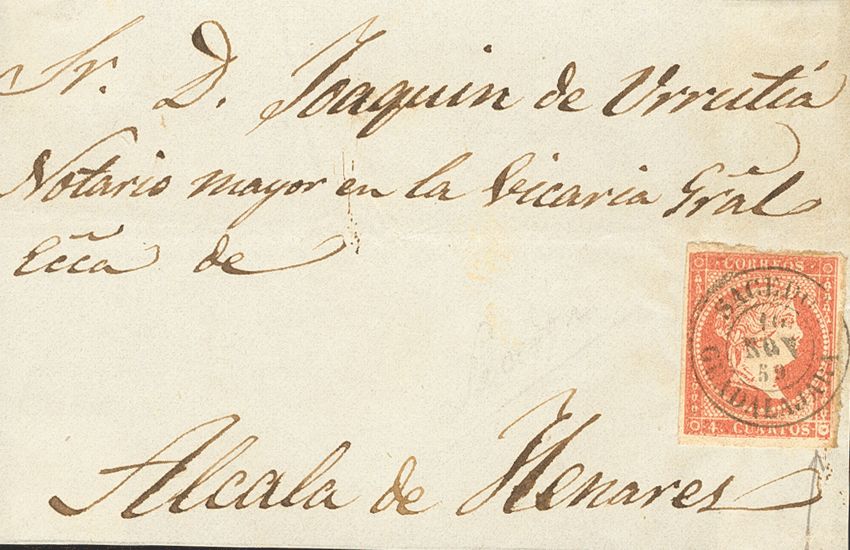 Sr. D. Joaquin de Urrutia
Notario mayor en la Vicaria Gral
Ecca de
CORREOS
SACEDO
16
NOV
59
GUADALAJARA
4 CUARTOS
Alcala de Henares